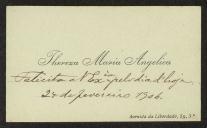 Thereza Maria Angelica
Felicita a V. Exª pelo dia d'hoje
24 de fevereiro 1906.
Avenida da Liberdade, 89, 3º